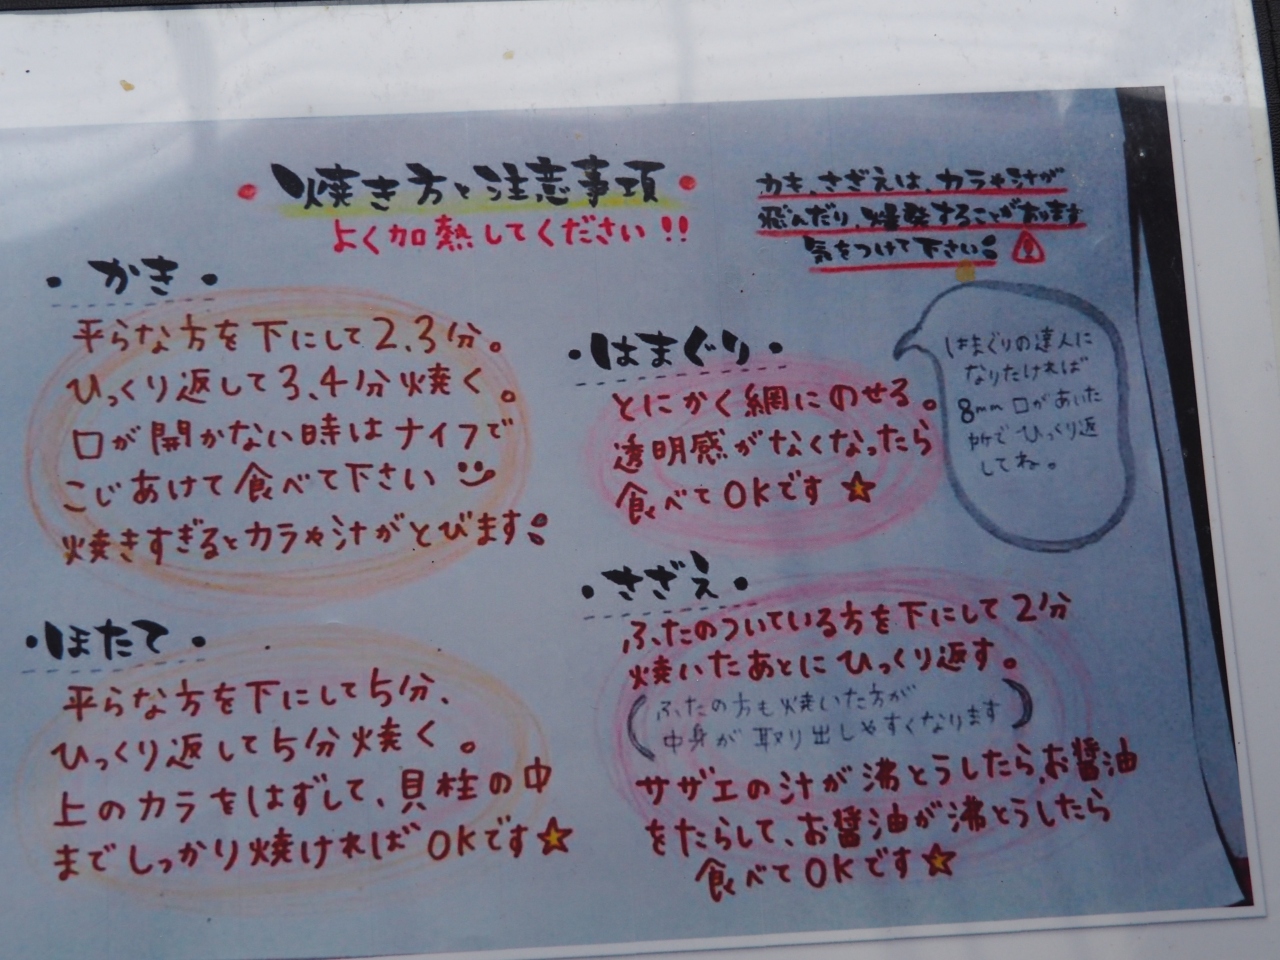 ・焼き方と注意事項・
よく加熱してください!!
カキ、さざえは、カラや汁が
飛んだり、爆発することがあります
気をつけて下さい!
・かき・
平らな方を下にして2、3分。
ひっくり返して3、4分焼く。
口が開かない時はナイフで
こじあけて食べて下さい
焼きすぎるとカラや汁がとびます!
・はまぐり・
とにかく網にのせる。
透明感がなくなったら
食べてOKです☆
はまぐりの達人に
なりたければ
8mm口があいた
所でひっくり返
してね。
・ほたて・
平らな方を下にして5分、
ひっくり返して5分焼く。
上のカラをはずして、貝柱の中
までしっかり焼ければOKです☆
・さざえ・
ふたのついている方を下にして2分
焼いたあとにひっくり返す。
(ふたの方も焼いた方が
中身が取り出しやすくなります)
サザエの汁が沸とうしたら、お醤油
をたらして、お醤油が沸とうしたら
食べてOKです☆